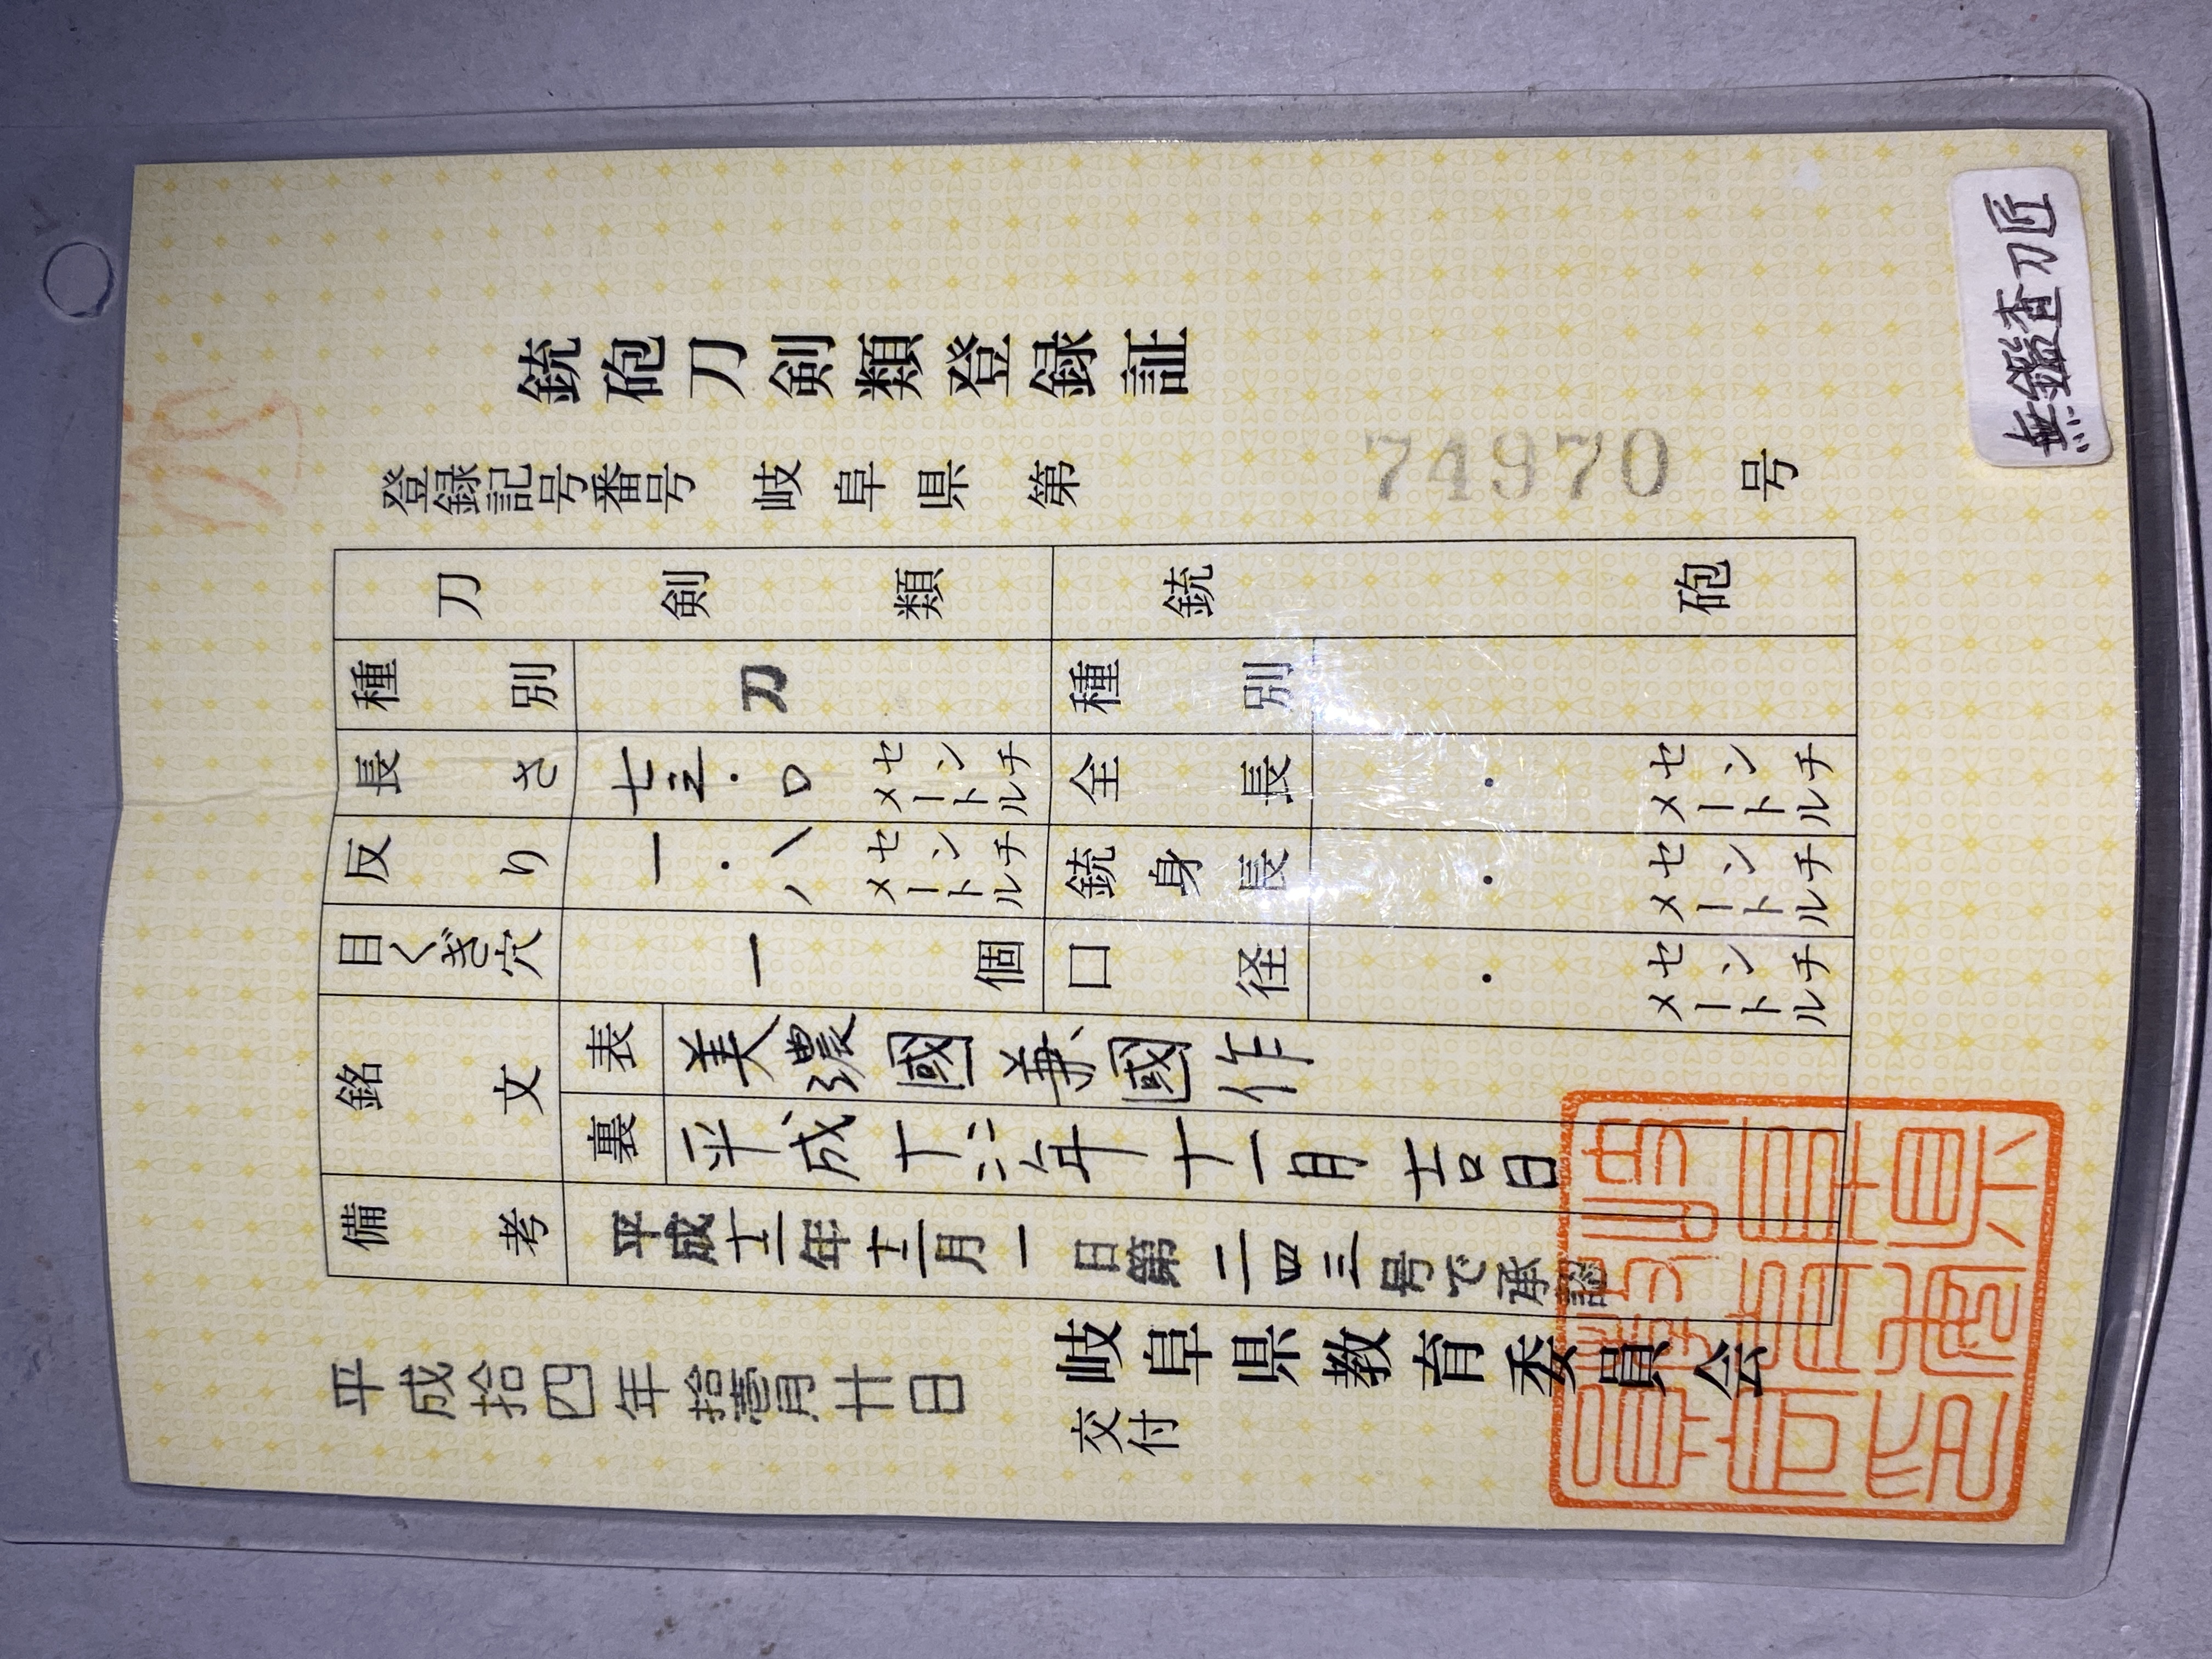 銃砲刀剣類登録証
登録記号番号 岐阜県 第 74970 号
刀剣類 銃砲
種別 刀 種別
長さ 七五・〇 センチメートル 全長 ・ センチメートル
反り 一・八 センチメートル 銃身長 ・ センチメートル
目くぎ穴 一 個 口径 ・ センチメートル
銘文 表 美濃國兼國作
裏 平成十 年十一月吉日
備考 平成 年 月一日第二四三号で承認
平成拾四年拾壹月廿日
岐阜県教育委員会
交付
無鑑査刀匠